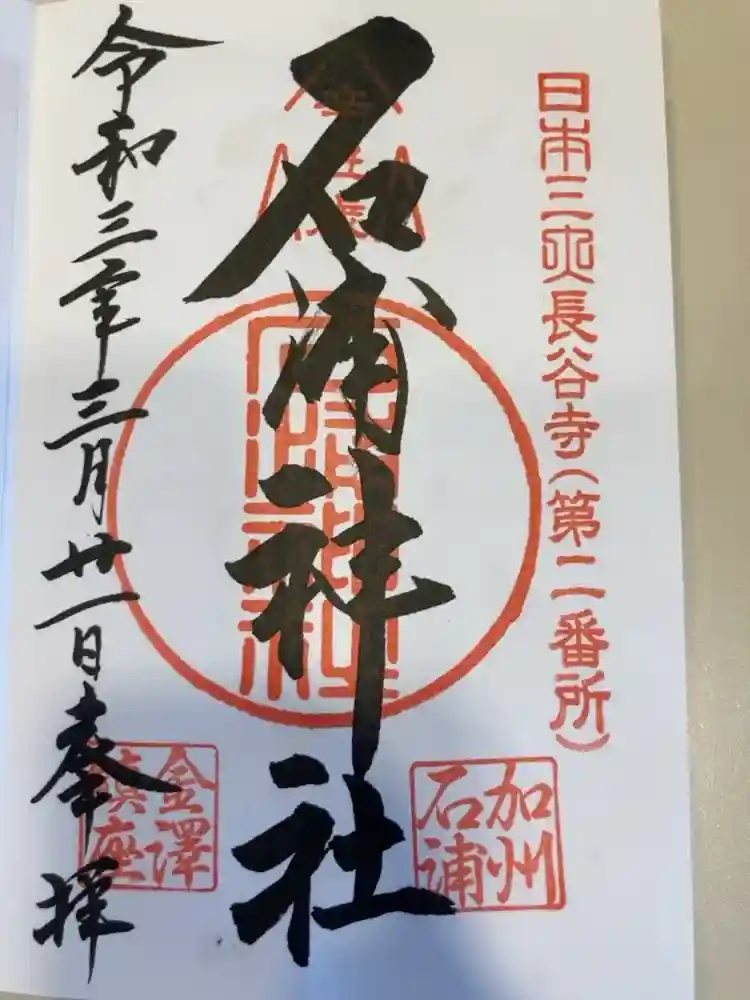 日本三大長谷寺（第二番所）
石浦神社
加州
石浦
令和三年三月廿一日奉拝
金澤
鎮座